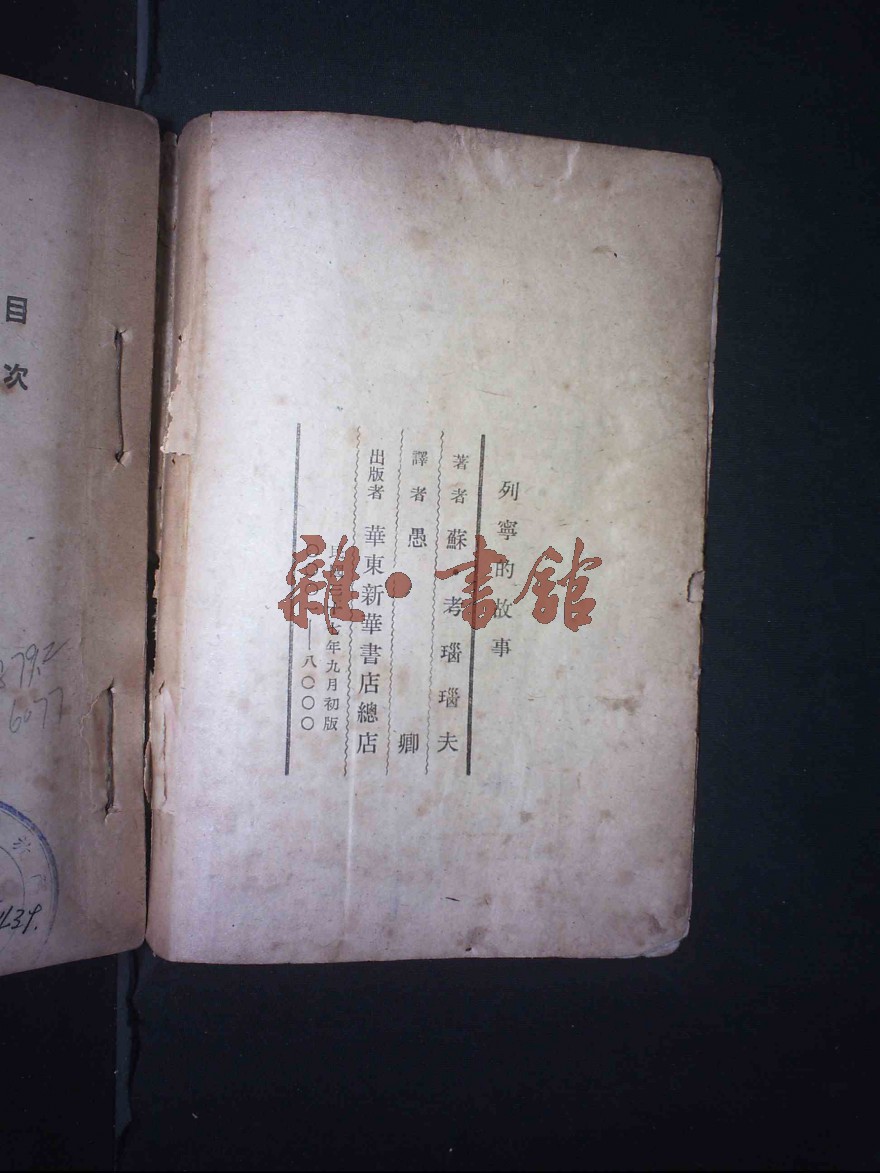 列寧的故事
著者 蘇考瑙瑙夫
譯者 愚卿
出版者 華東新華書店總店
年九月初版
—八〇〇〇
目次
雜·書館
6077